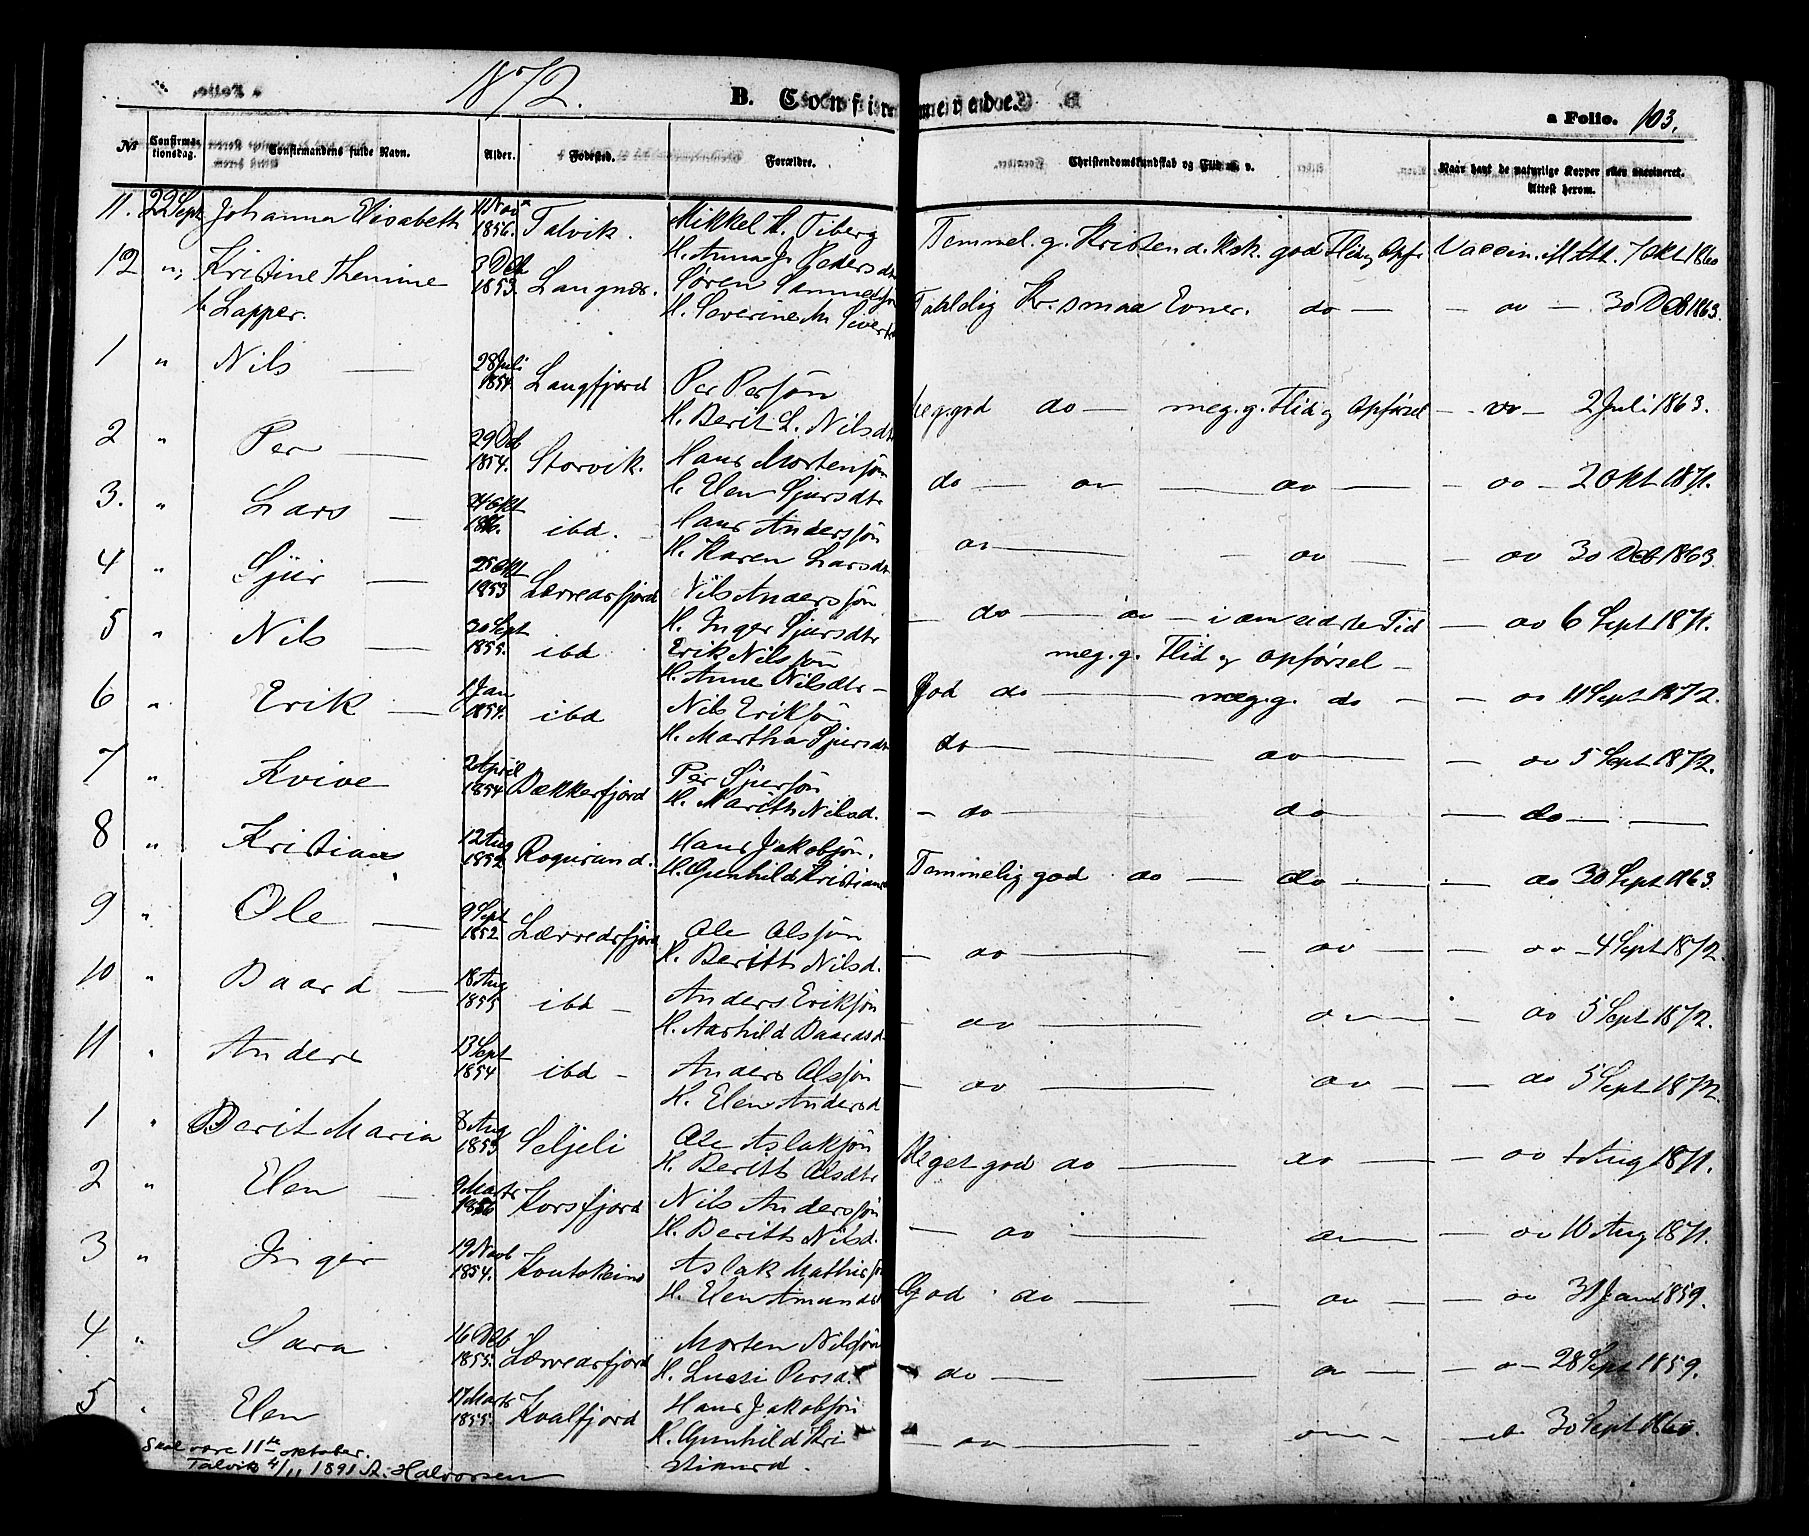 1872.
B. Confirmerede.
a Folio. 103.
No Confirmationsdag. Confirmandens fulde Navn. Alder. Fødested. Forældre. Christendomskundskab og Flid o. s. v. Naar havt de naturlige Kopper eller vaccineret. Attest herom.
11. 22 Sept Johanna Elisabeth 11 Nov 1856. Talvik. Mikkel A. Fiberg
H. Anna J. Pedersdt Temmel. g. Kristend. Ksk. god Flid og Opf. Vaccin. Att. 7 Okt 1860
12 " Kristine Themine 3 Deb 1853. Langnæs. Søren Sammelsøn
H. Severine M. Sivert Taalelig Kr. smaa Evner. do — — do — 30 Deb 1863.
b. Lapper.
1 " Nils — 28 Juli 1854. Langfjord Per Persøn
H. Berit L. Nilsdt Meg. god do — meg. g. Flid og Opførsel — do — 2 Juli 1863.
2 " Per — 29 Deb 1854. Storvik. Hans Mortensøn
H. Elen Sjursdtr do — do — do — — do — 2 Okt 1871.
3. " Lars — 24 Okt ibd. — Hans Anderssøn
H. Karen Larsdt do — — do — do 30 Deb 1863.
4 " Sjur — 25 Okt 1853 Lærredsfjord Nils Anderssøn
H. Inger Sjursdtr — do — do — i den sidste Tid — do 6 Sept 1871.
meg. g. Flid og Opførsel —
5 " Nils — 30 Sept 1855. ibd Erik Nilssøn
H. Anne Nilsdtr — God do — meg. g. do — — do 11 Sept 1872.
6 " Erik — 1 Jan 1854. ibd Nils Eriksøn
H. Martha Sjursdt do — — do — do 5 Sept 1872.
7 " Kvive 2 April 1854 Bækkerfjord Per Sjursøn
H. Marith Nilsd. — do — do — do — —
8 " Kristian 12 Aug 1852 Rognsund. Hans Jakobsøn.
H. Gunhild Kristiansd Temmelig god do — do — — do 30 Sept 1863.
9 " Ole — 9 Sept 1852 Lærredsfjord Ole Olssøn
H. Berith Nilsd. — do — — do — — do — 4 Sept 1872.
10 " Baard — 18 Aug 1855 ibd — Anders Eriksøn
H. Aashild Baardsd — do — do — — do 5 Sept 1872.
11 " Anders 13 Sept 1854 ibd — Anders Olssøn
H. Elen Andersd — do — do — — do 5 Sept 1872.
1 " Berit Maria 8 Aug 1853 Seljeli Ole Aslaksøn
H. Berith Olsdtr Meget god do — do — — do 1 Aug 1871.
2 " Elen — 9 Marts 1856 Korsfjord Nils Anderssøn
H. Berith Nilsd. — do — do — — do 10 Aug 1871.
3 " Inger 19 Novb 1854. Koutokeino Aslak Mathissøn
H. Elen Amundsd God do — — do — — do 31 Jan 1859.
4 " Sara 16 Deb 1855. Lærredsfjord Morten Nilssøn
H. Lussi Persd. — do — — do — — do — 28 Sept 1859.
5 " Elen 17 Marts 1855. Kvalfjord Hans Jakobsøn
H. Gunhild Kri
stiansd. — do — do — — do 30 Sept 1860.
Skal være 11te oktober.
Talvik 4/11 1891 A. Halvorsen